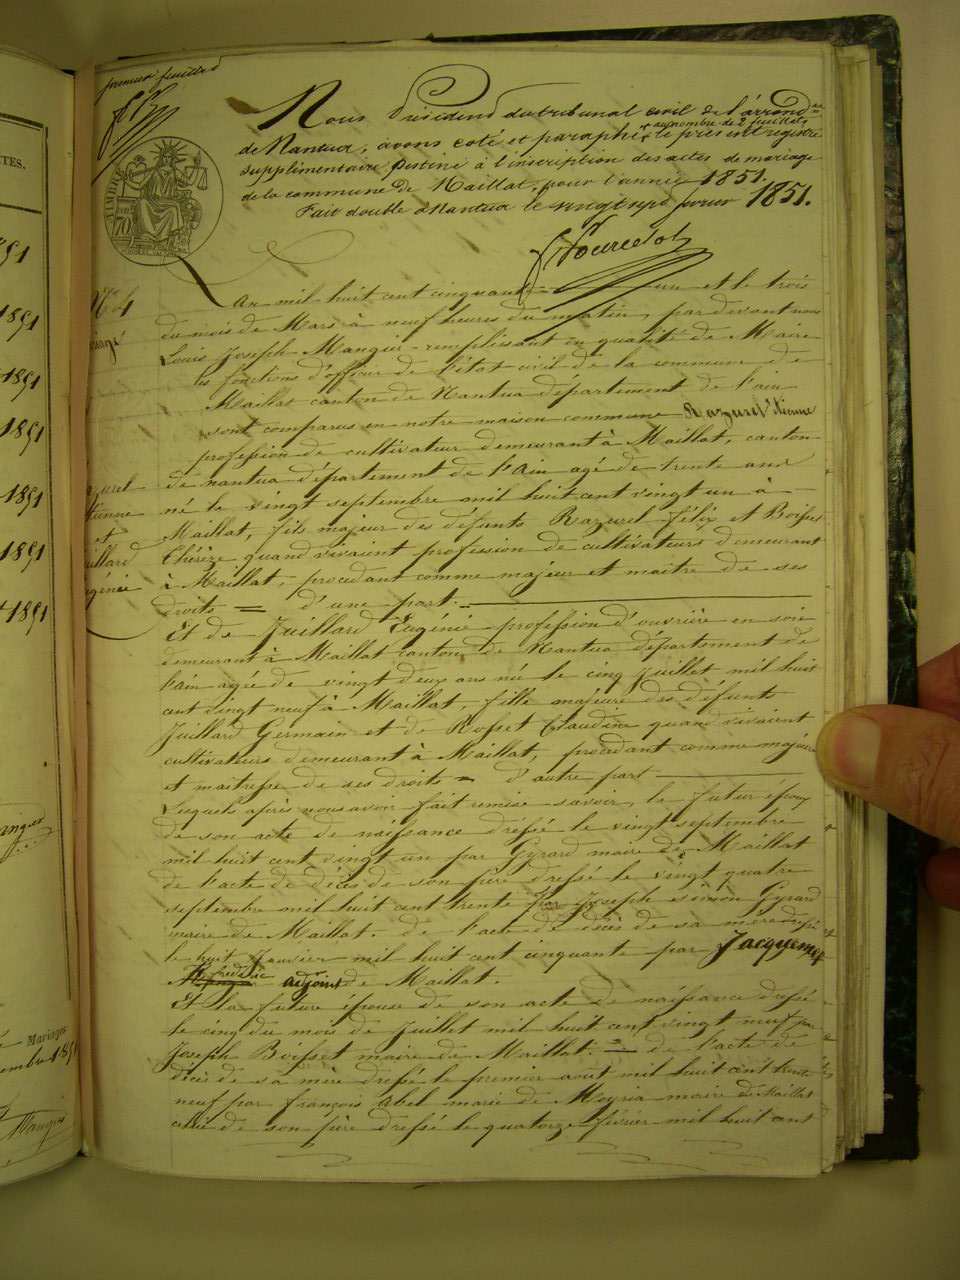 premier feuillet
Nous Président du tribunal civil de l'arrond.
de Nantua, avons coté et paraphé au nombre de 2 feuillets le présent registre
supplimentaire destiné à l'inscription des actes de mariage
de la commune de Maillat, pour l'année 1851.
Fait double à Nantua le vingt sept fevrier 1851.
TIMBRE
70
TES.
1891
1891
1891
1891
1891
1891
Mariages
N° 4
An mil huit cent cinquante un et le trois
du mois de Mars à neuf heures du matin, par devant nous
Louis Joseph Mangier remplissant en qualité de Maire
les fonctions d'officier de l'état civil de la commune de
Maillat canton de Nantua département de l'ain
sont comparus en notre maison commune Razurel Etienne
profession de cultivateur demeurant à Maillat, canton
de nantua département de l'Ain agé de trente ans
né le vingt septembre mil huit cent vingt un à
Maillat, fils majeur des défunts Razurel Félix et Boisset
Thérèze quand vivaient profession de cultivateurs demeurant
à Maillat, procedant comme majeur et maitre de ses
droits = d'une part.
Et de Juillard Eugénie profession d'ouvrière en soie
demeurant à Maillat canton de Nantua département de
l'ain agée de vingt deux ans née le cinq Juillet mil huit
cent vingt neuf à Maillat, fille majeure des défunts
Juillard Germain et de Rosset Claudine quand vivaient
cultivateurs demeurant à Maillat, procedant comme majeure
et maitresse de ses droits = d'autre part
Lesquels après nous avoir fait remise savoir, le futur époux
de son acte de naissance dressé le vingt septembre
mil huit cent vingt un par Gyrard maire de Maillat
de l'acte de décès de son père dressé le vingt quatre
septembre mil huit cent trente par Joseph simon Gyrard
maire de Maillat. de l'acte de décès de sa mère dressé
le huit Janvier mil huit cent cinquante par Jacquemet
frédéric adjoint de Maillat.
Et la future épouse de son acte de naissance dressé
le cinq du mois de Juillet mil huit cent vingt neuf par
Joseph Boisset maire de Maillat. = de l'acte de
décès de sa mere dressé le premier aout mil huit cent trente
neuf par françois Abel marie de Moyria maire de Maillat
celui de son père dressé le quatorze février mil huit cent